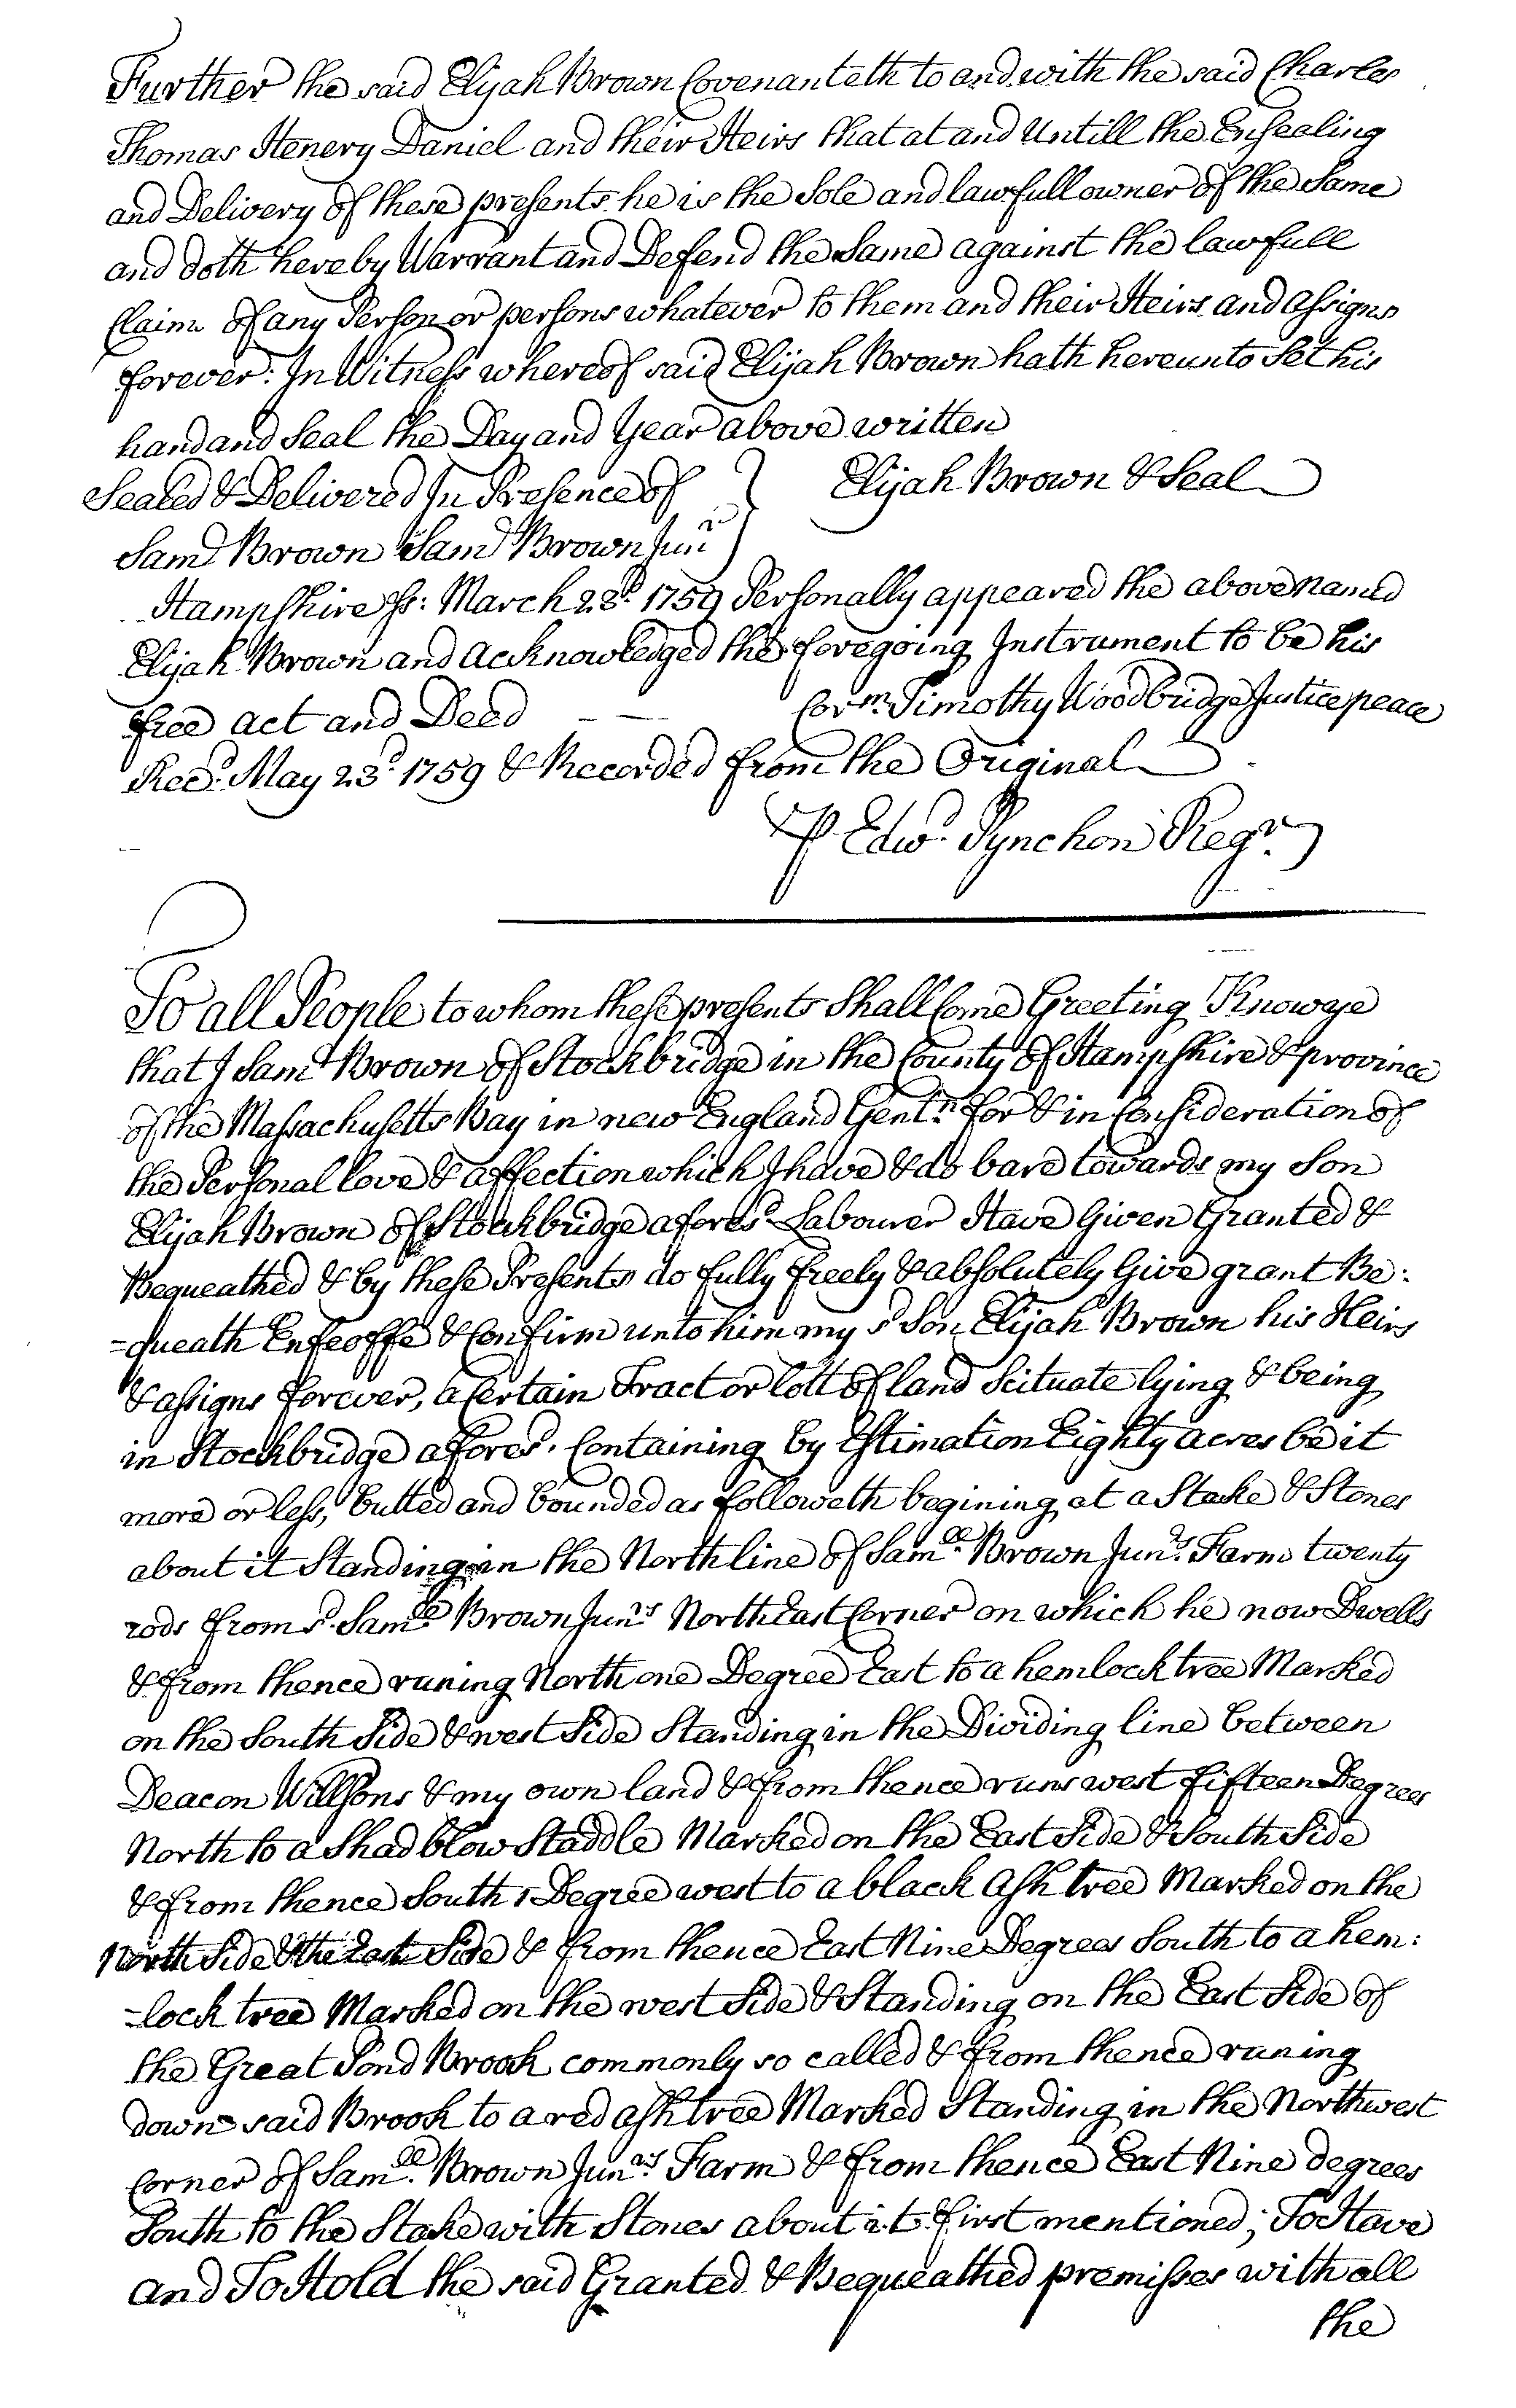 Further the said Elijah Brown Covenanteth to and with the said Charles
Thomas Henery Daniel and their Heirs that at and Untill the Ensealing
and Delivery of these presents he is the Sole and lawfull owner of the Same
and doth hereby Warrant and Defend the Same against the lawfull
Claim of any Person or persons whatever to them and their Heirs and Assigns
forever: In Witness whereof said Elijah Brown hath hereunto Set his
hand and Seal the Day and Year above written
Sealed & Delivered In Presence of } Elijah Brown & Seal
Saml Brown Saml Brown Junr
Hampshire ss: March 23d. 1759 Personally appeared the above Named
Elijah Brown and Acknowledged the foregoing Instrument to be his
free act and Deed — — Corm. Timothy Woodbridge Justice peace
Recd. May 23d 1759 & Recorded from the Original
P Edwd. Pynchon Regr.
To all People to whom these presents Shall Come Greeting Know ye
that I Saml Brown of Stockbridge in the County of Hampshire & province
of the Massachusetts Bay in new England Gentn. for & in Consideration of
the Personal love & affection which I have & do bare towards my Son
Elijah Brown of Stockbridge aforesd. Labourer Have Given Granted &
Bequeathed & by these Presents do fully freely & absolutely Give grant Be:
=queath Enfeoffe & Confirm unto him my sd Son Elijah Brown his Heirs
& assigns forever, a Certain Tract or lott of land Scituate lying & being
in Stockbridge aforesd. Containing by Estimation Eighty acres be it
more or less, butted and bounded as followeth begining at a Stake & Stones
about it Standing in the North line of Samll. Brown Junrs. Farm twenty
rods from sd. Samll Brown Junrs North East Corner on which he now Dwells
& from thence runing North one Degree East to a hemlock tree Marked
on the South Side & west Side Standing in the Dividing line between
Deacon Willsons & my own land & from thence runs west fifteen Degrees
North to a Shad blow Staddle Marked on the East Side & South Side
& from thence South 1 Degree west to a black Ash tree Marked on the
North Side & the East Side & from thence East Nine Degrees South to a hem:
=lock tree Marked on the west Side & Standing on the East Side of
the Great Pond Brook commonly so called & from thence runing
down said Brook to a red ash tree Marked Standing in the Northwest
Corner of Samll. Brown Junrs Farm & from thence East Nine degrees
South to the Stake with Stones about it first mentioned; To Have
and To Hold the said Granted & Bequeathed premisses with all
the